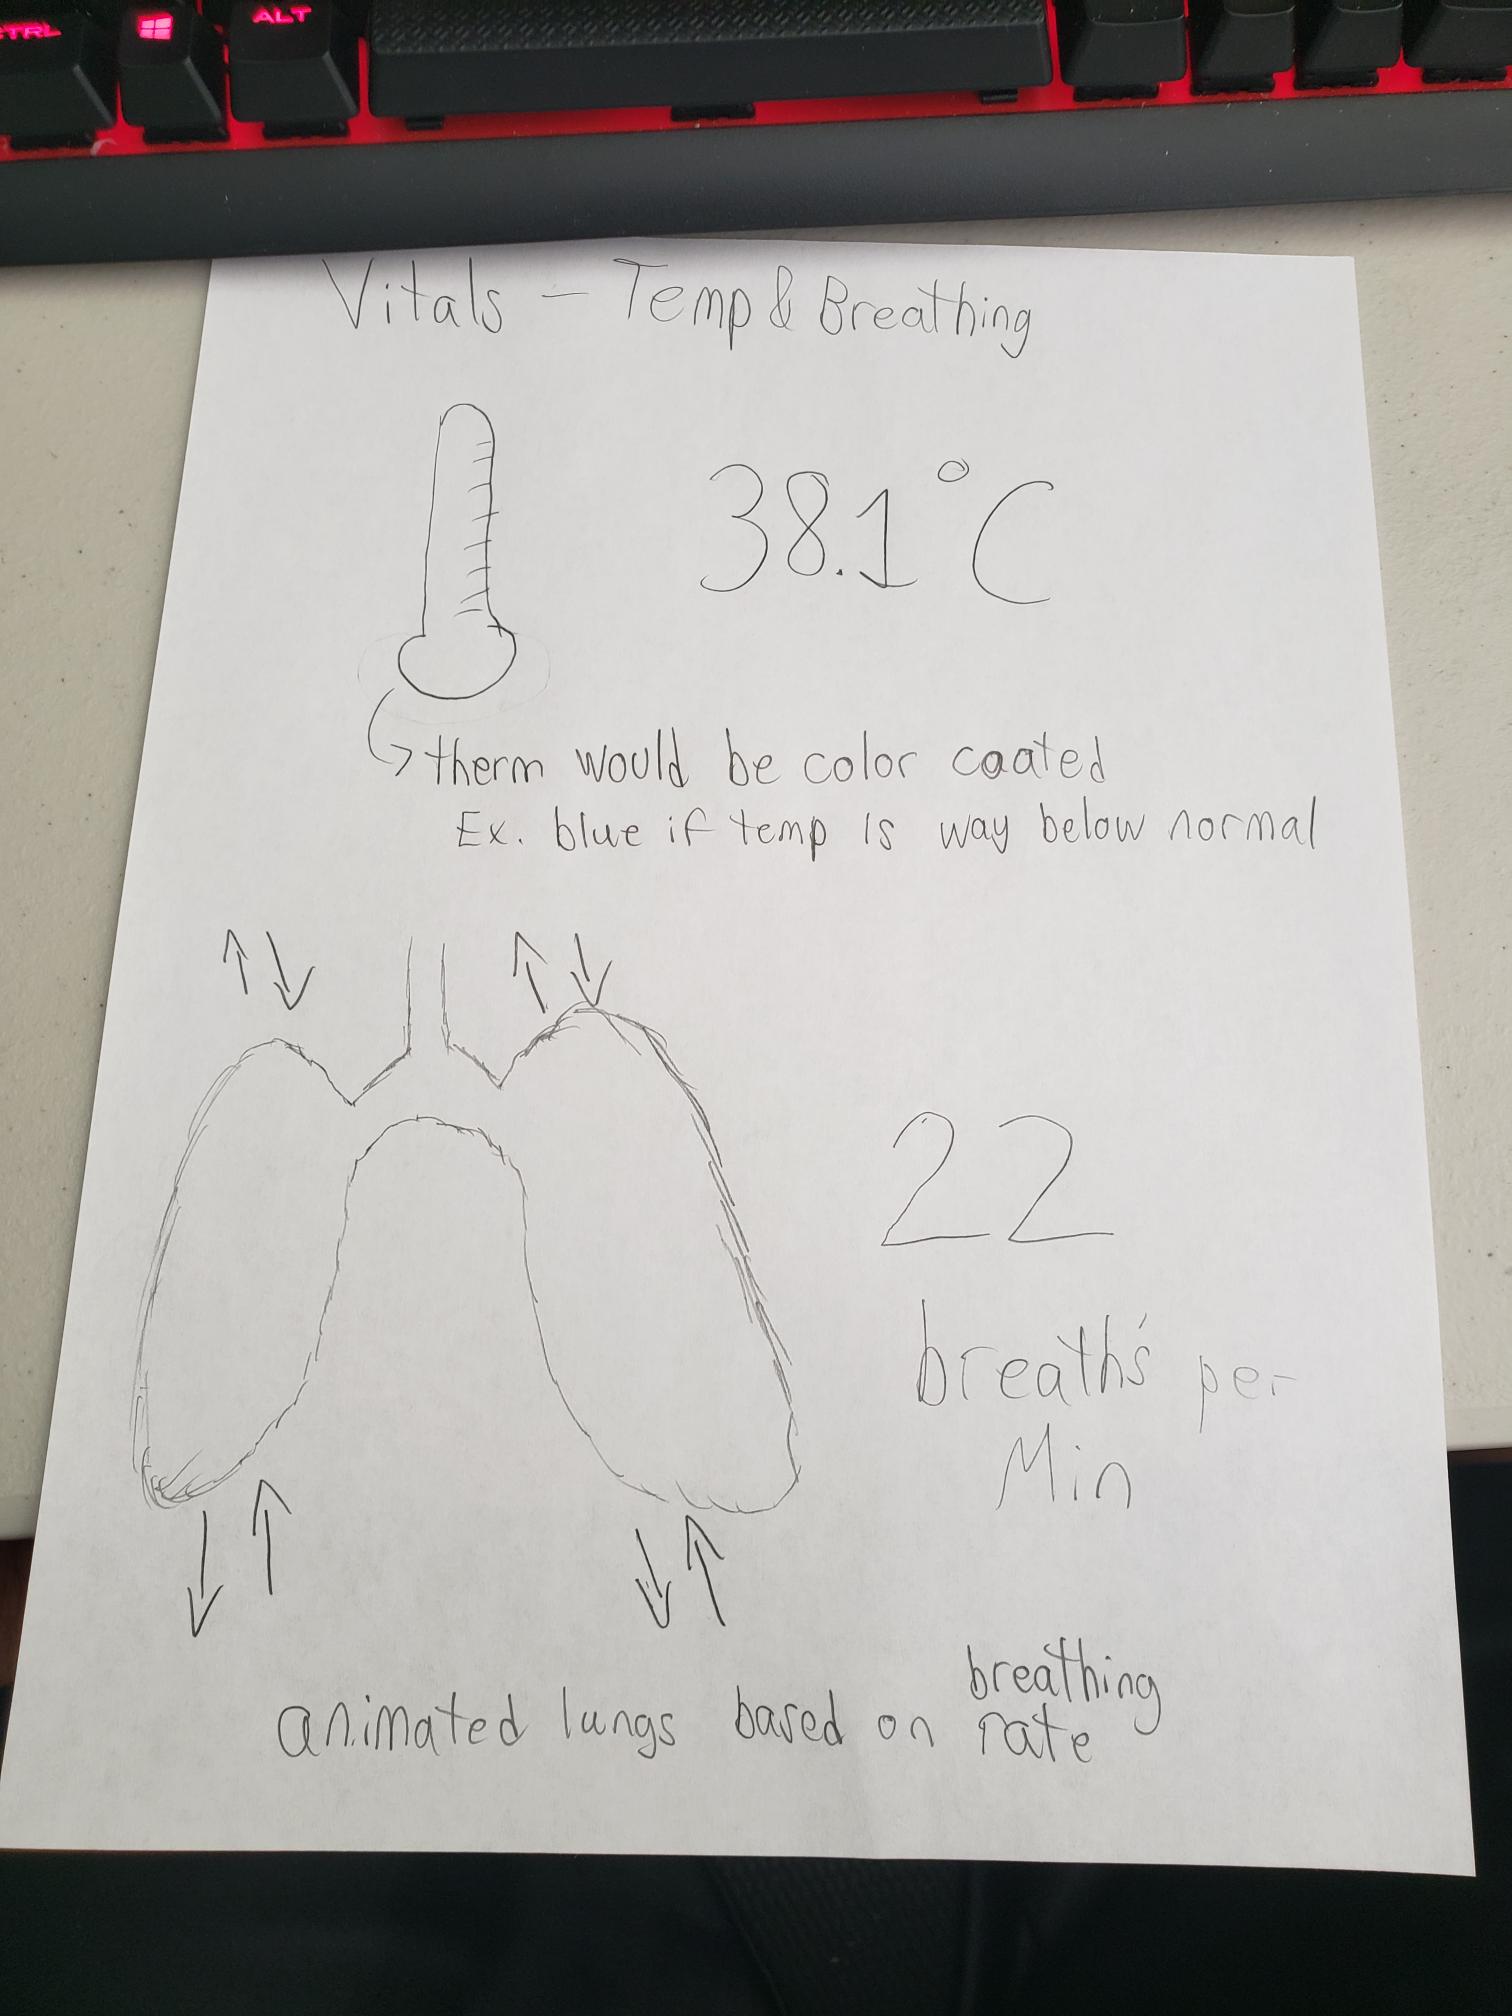 CTRL
ALT
Vitals - Temp & Breathing
38.1°C
therm would be color coated
Ex. blue if temp is way below normal
22
breath's per
Min
animated lungs based on breathing rate